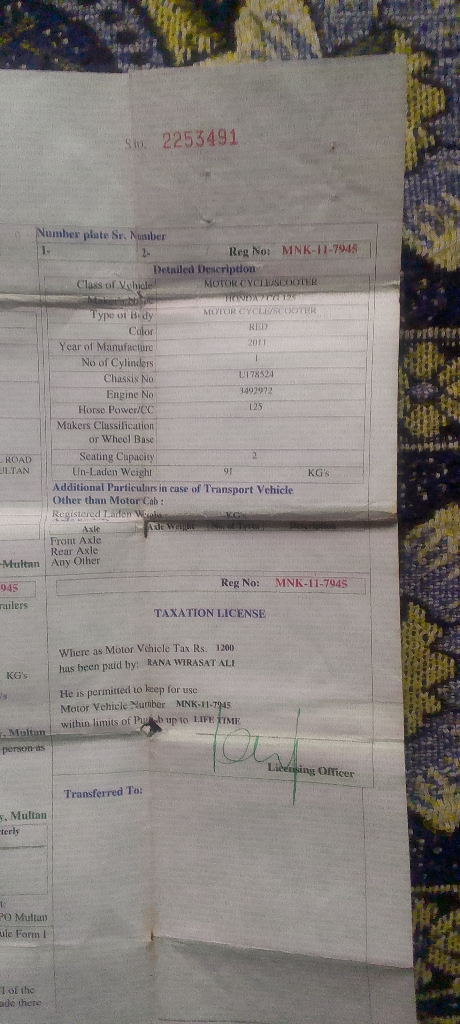 S no. 2253491
Number plate Sr. Number
1- 2- Reg No: MNK-11-7945
Detailed Description
Class of Vehicle MOTOR CYCLE/SCOOTER
Maker's Name HONDA / CG 125
Type of Body MOTOR CYCLE/SCOOTER
Color RED
Year of Manufacture 2011
No of Cylinders 1
Chassis No U178524
Engine No 3492972
Horse Power/CC 125
Makers Classification
or Wheel Base
Seating Capacity 2
Un-Laden Weight 91 KG's
Additional Particulars in case of Transport Vehicle
Other than Motor Cab :
Registered Laden KG's
Axle Axle Weight
Front Axle
Rear Axle
Any Other
Reg No: MNK-11-7945
TAXATION LICENSE
Where as Motor Vehicle Tax Rs. 1200
has been paid by: RANA WIRASAT ALI
He is permitted to keep for use
Motor Vehicle Number MNK-11-7945
within limits of Punjab up to LIFE TIME
Licensing Officer
Transferred To:
ROAD
ULTAN
Multan
945
railers
KG's
, Multan
person as
y, Multan
terly
PO Multan
ule Form I
l of the
ade there